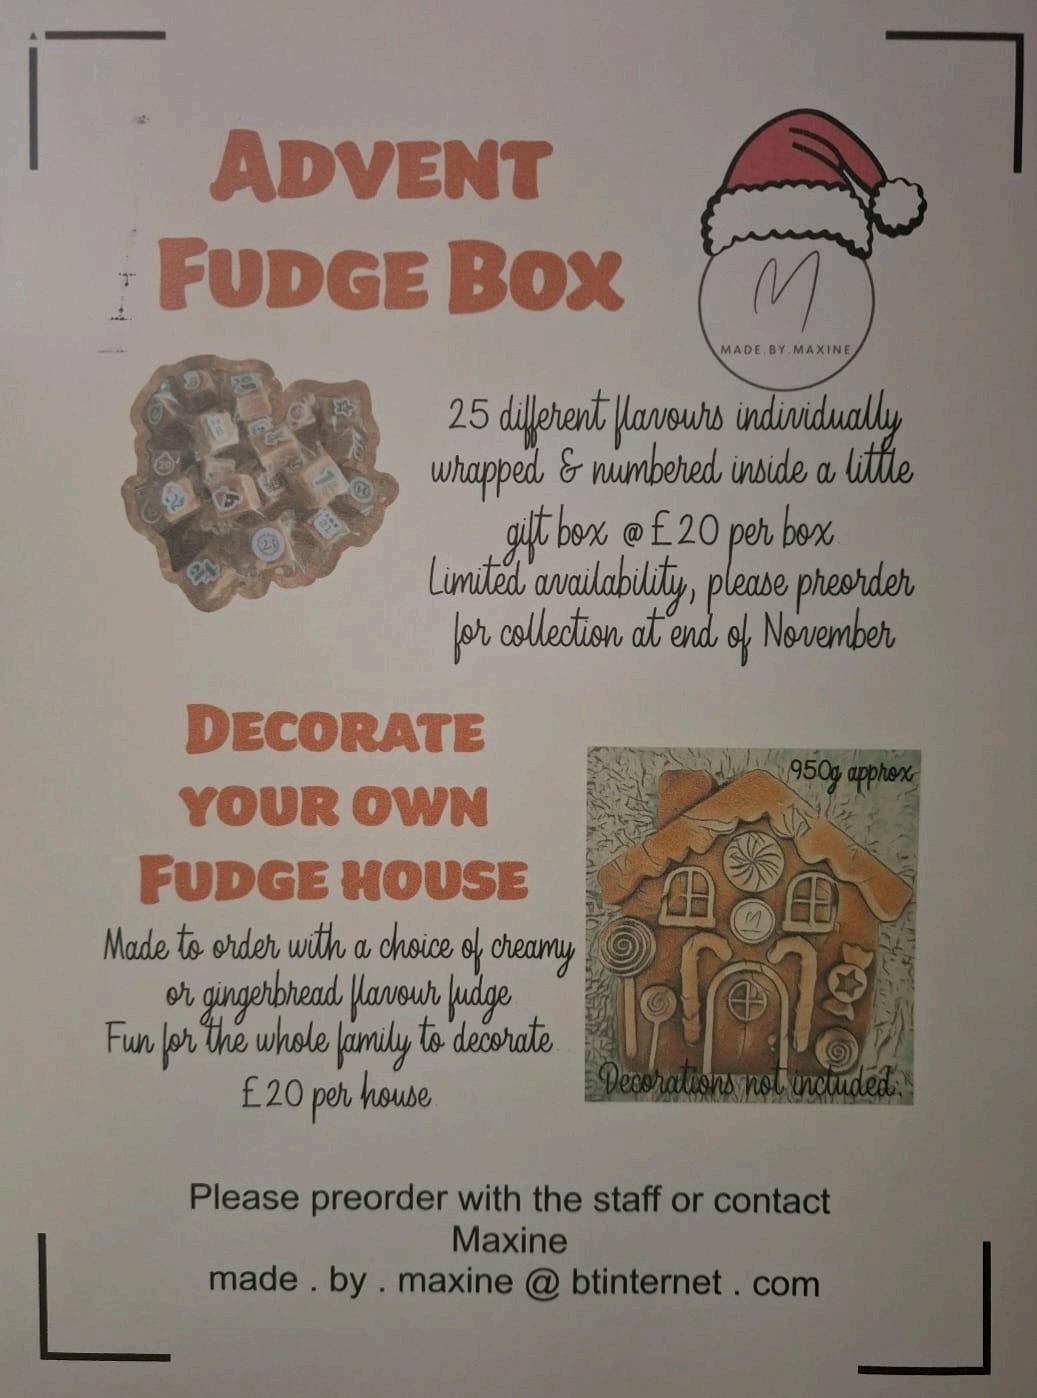 ADVENT
FUDGE BOX
M
MADE.BY.MAXINE
25 different flavours individually
wrapped & numbered inside a little
gift box @ £20 per box
Limited availability, please preorder
for collection at end of November
DECORATE
YOUR OWN
FUDGE HOUSE
Made to order with a choice of creamy
or gingerbread flavour fudge
Fun for the whole family to decorate
£20 per house
950g approx
M
Decorations not included.
Please preorder with the staff or contact
Maxine
made . by . maxine @ btinternet . com